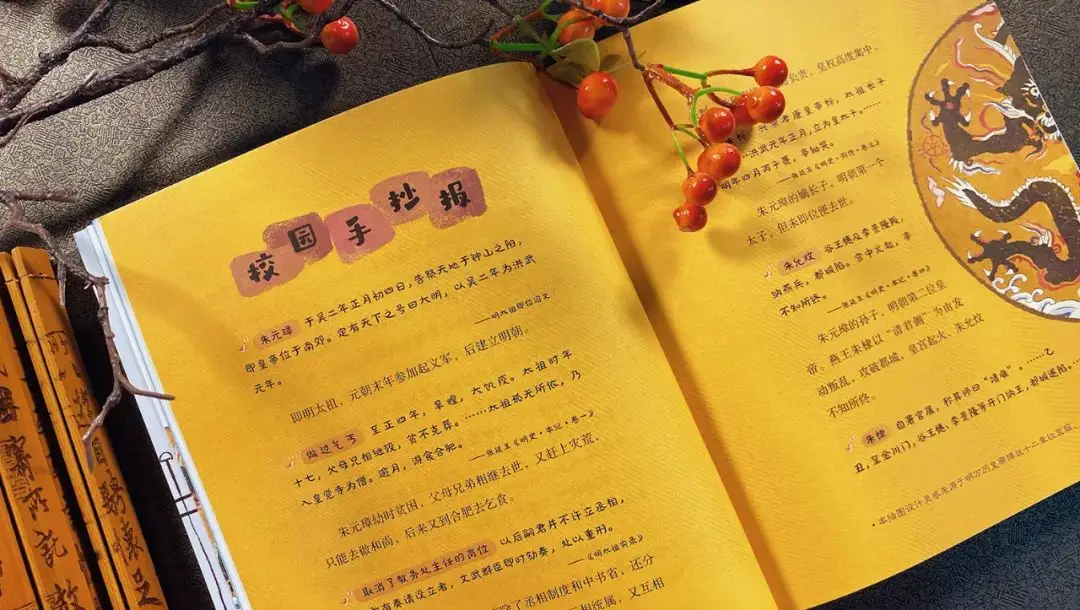 校园手抄报
朱元璋 于吴二年正月初四日，告祭天地于钟山之阳，
即皇帝位于南郊。定有天下之号曰大明，以吴二年为洪武
元年。
——明太祖即位诏文
即明太祖，元朝末年参加起义军，后建立明朝。
做过乞丐 至正四年，旱蝗，大饥疫。太祖时年
十七，父母兄相继殁，贫不克葬。……太祖孤无所依，乃
入皇觉寺为僧。逾月，游食合肥。
——张廷玉《明史·本记·卷一》
朱元璋幼时贫困，父母兄弟相继去世，又赶上灾荒，
只能去做和尚，后来又到合肥去乞食。
取消了教务处主任的岗位 以后嗣君并不许立丞相，
有奏请设立者，文武群臣即时劾奏，处以重刑。
除了丞相制度和中书省，还分
相统属，又互相
负责，皇权高度集中。
兴宗孝康皇帝标，太祖长子
洪武元年正月，立为皇太子。……
明年四月丙子薨，帝恸哭。
——张廷玉《明史·列传·卷三》
朱元璋的嫡长子，明朝第一个
太子，但未即位便去世。
朱允炆 谷王橞及李景隆叛，
纳燕兵，都城陷。宫中火起，帝
不知所终。
——张廷玉《明史·本记·卷四》
朱元璋的孙子，明朝第二位皇
帝。燕王朱棣以“清君侧”为由发
动叛乱，攻破都城，皇宫起火，朱允炆
不知所终。
朱棣 自署官属，称其师曰“靖难”。……乙
丑，至金川门，谷王橞、李景隆等开门纳王，都城遂陷。
·本绘图设计灵感来源于明万历皇帝缂丝十二章衮服。